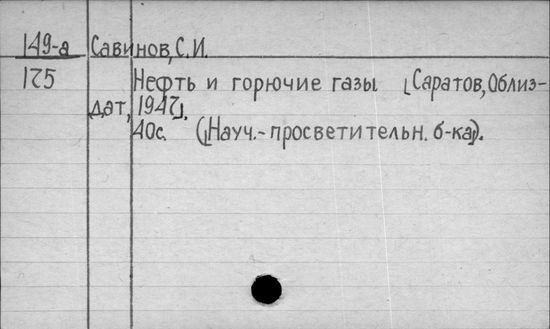 149-а Савинов, С.И.
175 Нефть и горючие газы [Саратов, Облиз-
дат, 1947].
40с. ([Науч.-просветительн. б-ка]).